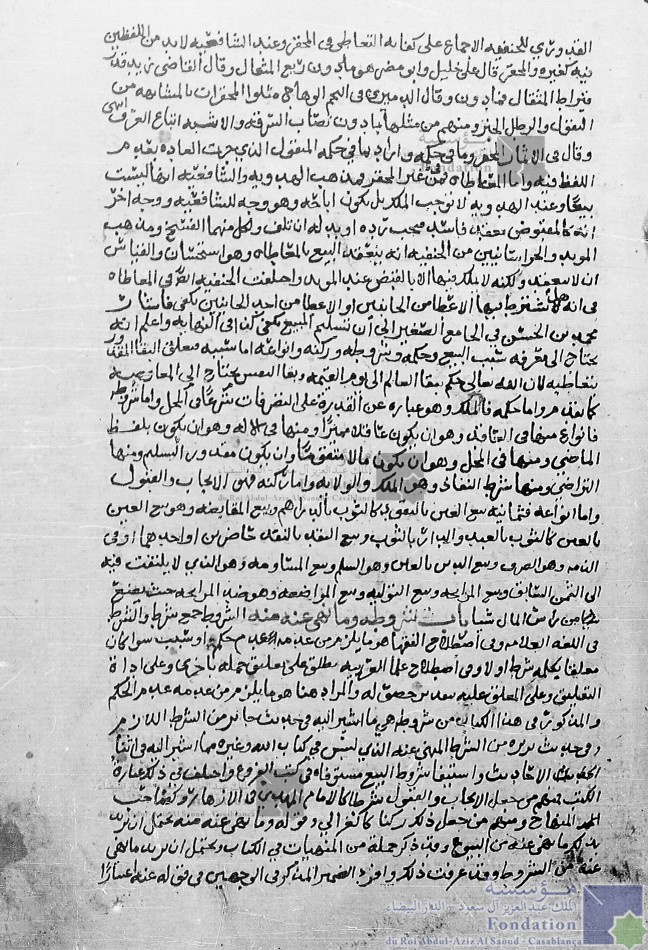 القدوري للحنفيه الاجماع على كفايه التعاطي في المحقر وعند الشافعيه لابد من اللفظين
فيه كغيره والمحقر قال على خليل وابو مضر هو مادون ربع المثقال وقال القاضي زيد قدر
قيراط المثقال فمادون وقال الدميري في النجم الوهاج مثلوا المحقرات بالمشابهه من
البقول والرطل الخبز ومنهم من مثلها بمادون نصاب السرقه والاشبه اتباع العرف انتهى
وقال في الاثمار المحقر وما في حكمه واراد بما في حكمه المنقول الذي جرت العاده بعدم
اللفظ فيه واما المعاطاه في غير المحقر فمذهب الهدويه والشافعيه انها ليست
بيعا وعند الهدويه لا توجب الملك بل تكون اباحه وهو وجه للشافعيه ووجه اخر
انه كالمقبوض بعقد فاسد فيجب رده او بدله ان تلف ولكل منهما الفسخ ومذهب
المويد والخراسانيين من الحنفيه انه ينعقد البيع بالمعاطاه وهو استحسان والقياس
ان لا ينعقد ولكنه لا يملك فيها الا بالقبض عند المويد واختلفت الحنفيه في المعاطاه
في انه هل يشترط فيها الاعطا من الجانبين او الاعطا من احد الجانبين يكفي فاشار
محمد بن الحسن في الجامع الصغير الى ان تسليم المبيع يكفي كذا في النهايه واعلم انه
يحتاج الى معرفه سبب البيع وحكمه وشروطه وركنه وانواعه اما سببه فتعلق البقا المقدور
بتعاطيه لان الله تعالى حكم ببقا العالم الى يوم القيمه وبقا النفس يحتاج الى المعاوضه
كما تقدم واما حكمه فالملك وهو عباره عن القدرة على التصرفات شرعا في المحل واما شروطه
فانواع منها في العاقد وهو ان يكون عاقلا مميزا ومنها في الاله وهو ان يكون بلفظ
الماضي ومنها في المحل وهو ان يكون مالا متقوما وان يكون مقدور التسليم ومنها
التراضي ومنها شرط النفاذ وهو الملك والولايه واما ركنه فهو الايجاب والقبول
واما انواعه فثمانيه بيع العين بالنقود كالثوب بالدراهم وبيع المقايضه وهو بيع العين
بالعين كالثوب بالعبد وبيع النقد بالنقد
الذمه وهو الصرف وبيع الدين بالعين وهو السلم وبيع المساومه وهو الذي لا يلتفت فيه
الى الثمن السابق وبيع المرابحه وبيع التوليه وبيع المواضعه وهو ضد المرابحه حيث يضع
من راس المال شيا باب شروطه وما نهي عنه منه الشروط جمع شرط والشرط
في اللغه العلامه وفي اصطلاح الفقها هو ما يلزم من عدمه عدم حكم او سبب سوا كان
معلقا بكلمه شرط اولا وفي اصطلاح علما العربيه يطلق على تعليق جمله باخرى وعلى اداة
التعليق وعلى المعلق عليه والمراد هنا هو ما يلزم من عدمه عدم الحكم
والمذكور في هذا الكتاب من شروطه هي ما اشير اليه في حديث جابر من الشرط اللازم
وفي حديث بريره من الشرط المنهي عنه الذي ليس في كتاب الله وغيره مما اشير اليه في اثنا
الاحاديث واستيفا شروط البيع مستوفاه في كتب الفروع واختلف في ذلك عبارة
الكتب فمنهم من جعل الايجاب والقبول شرطا كالامام المهدي في الازهار وكصاحب
المنهاج ومنهم من جعل ذلك ركنا كالغزالي وقوله وما نهي عنه منه يحتمل ان يريد
بذلك ما نهي عنه من البيوع وقد ذكر جمله من المنهيات في الكتاب ويحتمل ان يريد ما نهي
عنه من الشروط وقد عرفت ذلك وافرد الضمير المذكر في الوجهين في قوله عنه اعتبارا
مؤسسة
الملك عبد العزيز آل سعود - الدار البيضاء
Fondation
du Roi Abdul-Aziz Al Saoud - Casablanca